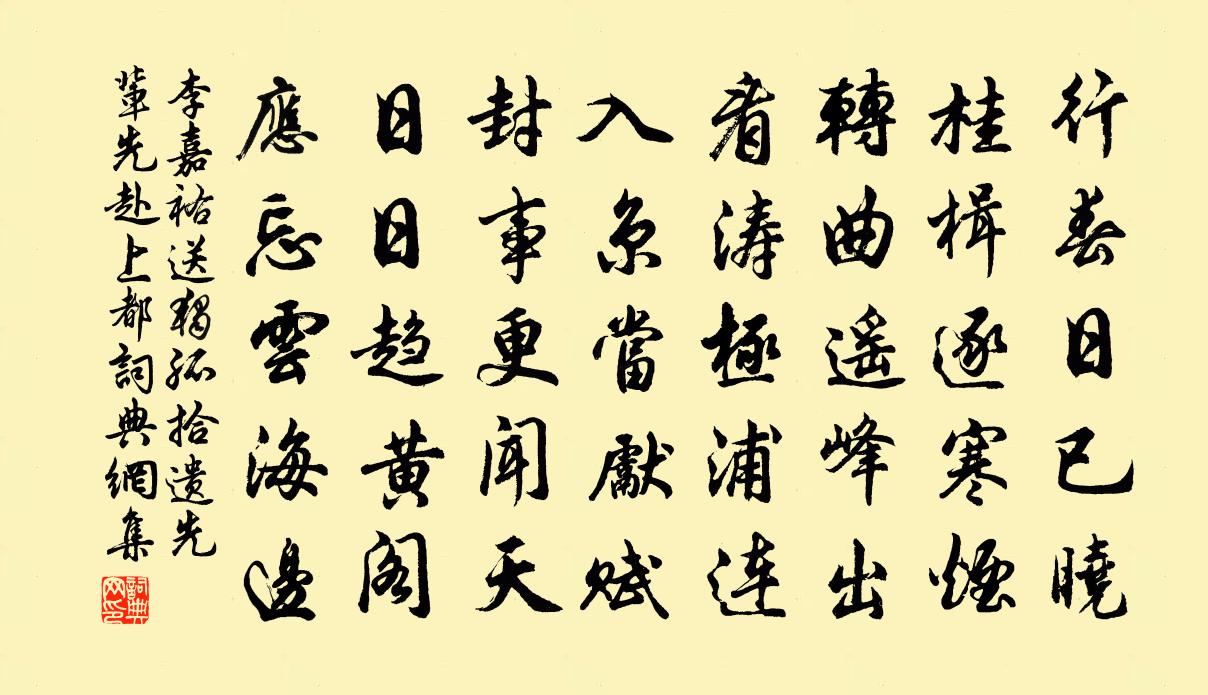 行春日已曉
桂楫逐寒煙
轉曲遥峰出
看濤極浦連
入京當獻賦
封事更聞天
日日趨黃閣
應忘雲海邊
李嘉祐送獨孤拾遗先
輩先赴上都詞典網集
詞典網印